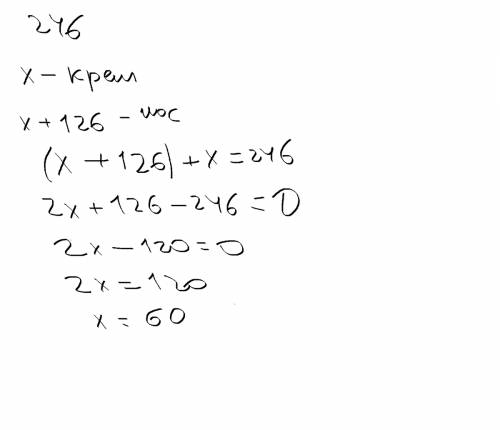 246
x - крем
x + 126 - мос
(x + 126) + x = 246
2x + 126 - 246 = 0
2x - 120 = 0
2x = 120
x = 60